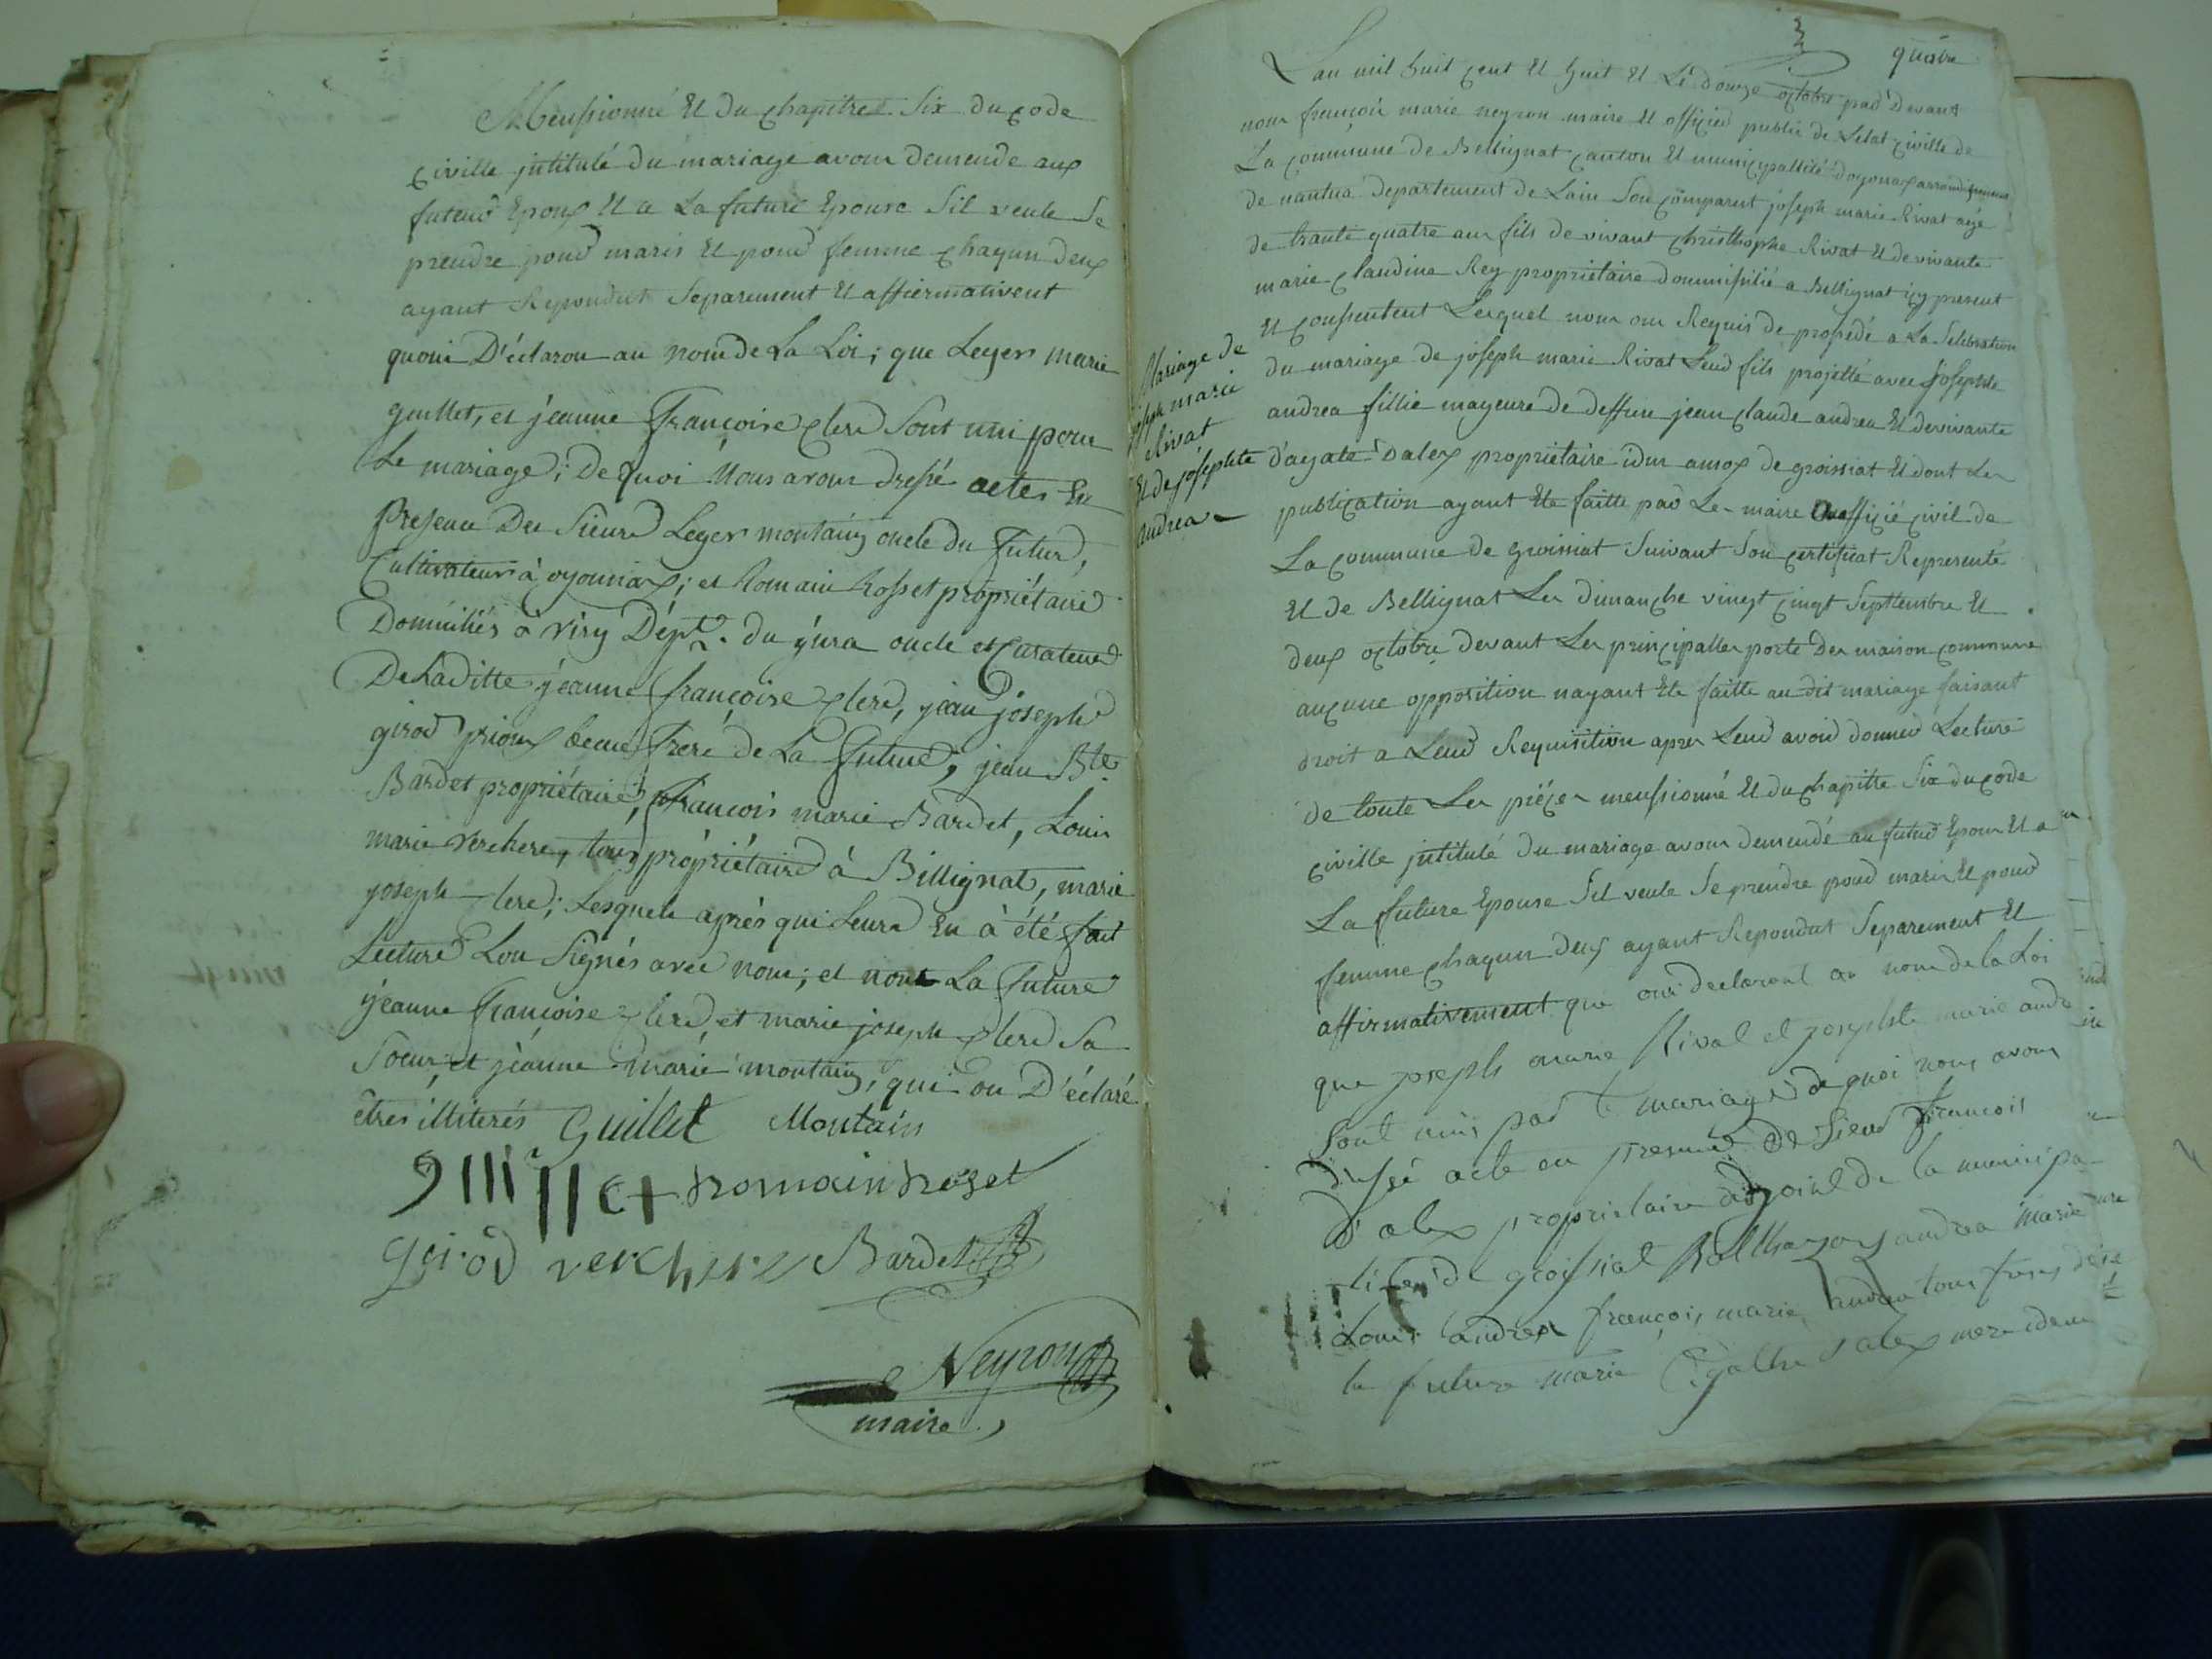 Meussionné Et du chapitre Six du code
civille jntitulé du mariage avons demende aux
futeur Epoux Et a La future Epouse Sil veule Se
prendre pour maris Et pour femme chaqun deux
ayant Repondut Separement Et affiermativent
quoni D'éclaron au nom de La Loi; que Leger marie
guillet, et jeanne Françoise Clere Sont uni pour
Le mariage; De quoi Nous avons dressé actes En
Presence Des Sieurs Leger montain oncle du Futur,
Cultivateur à oyonnax; et Romain Rosset propriétaire
Domiciliés à Viry Dépt. du jura oncle et Curateur
De Laditte jeanne françoise Clere, jean joseph
girod prioux beau Frere de La Future, jean Bte
Bardet propriétaire, François marie Bardet, Louis
marie Verchere, tous propriétaire à Billignat, marie
joseph Clere; Lesquels après qui Leurs En à été fait
Lecture Lon Signés avec nous; et non La Future
jeanne Françoise Clere et marie joseph Clere Sa
Soeur et jeanne marie montain, qui on D'éclaré
êtres illiterés Guillet Montain
guillet romain roset
girod verchere Bardet
Neyron
maire
quatre
Lan mil huit cent Et huit Et Le douze octobre par Devant
nous françois marie neyron maire Et officier public de Letat civille de
La commune de Bellignat canton Et municypallité doyonax arrondissement
de nantua departement de Lain Son comparut joseph marie Rivat agé
de trante quatre ans fils de vivant Christhophe Rivat Et de vivante
marie Claudine Rey propriétaire doumisilié a Bellignat icy present
Et consentent Lesquel nous on Requis de prosedé a La Selebration
du mariage de joseph marie Rivat Leur fils projetté avec josephte
Mariage de
joseph marie
Rivat
Et de josephte
andrea
andrea fillie mayeure de deffun jean claude andrea Et devivante
d'agate Dalex propriétaire idm amox de groissiat Et dont Les
publication ayant Ete faitte par Le maire officié civil de
La commune de groissiat Suivant Son certificat Representé
Et de Bellignat Les dimanche vingt cinqt Septtembre Et
deux octobre devant Les principalles porte Des maison commune
auqune opposition nayant Ete faitte au dit mariage faisant
droit a Leur Requisition apres Leur avoir donner Lecture
de toute Les piéçes meussionné Et du chapitte Six du code
civille jntitulé du mariage avons demendé au futur Epoux Et a
La future Epouse Sil veule Se prendre pour maris Et pour
femme chaqun deux ayant Repondut Separement Et
affirmativement que oui declaront au nom de la Loi
que joseph marie Rivat et josephte marie andr
Sont unis par le mariage de quoi nous avons
dressé acte en presence de Sieur François
D'alex propriétaire adjoint de la municipa
lité de groissiat Balthazard andrea marie
Louis andrea françois marie andrea tous freres de
la future marie agathe Dalex mere idem